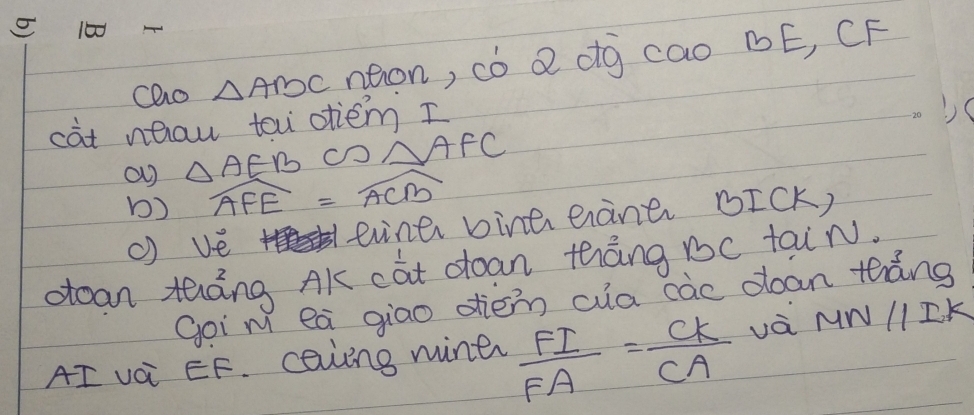 b)
B
I
Cho △ABC nhọn, có 2 đg̀ cao BE, CF
cắt nhau tại điểm I
a) △AEB ∽ △AFC
b) \widehat{AFE} = \widehat{ACB}
c) Vẽ hình bình hành BICK,
đoạn thẳng AK cắt đoạn thẳng BC tại N.
Gọi M là giao điểm của các đoạn thẳng
AI và EF. Chứng minh FI/FA = CK/CA và MN // IK
20